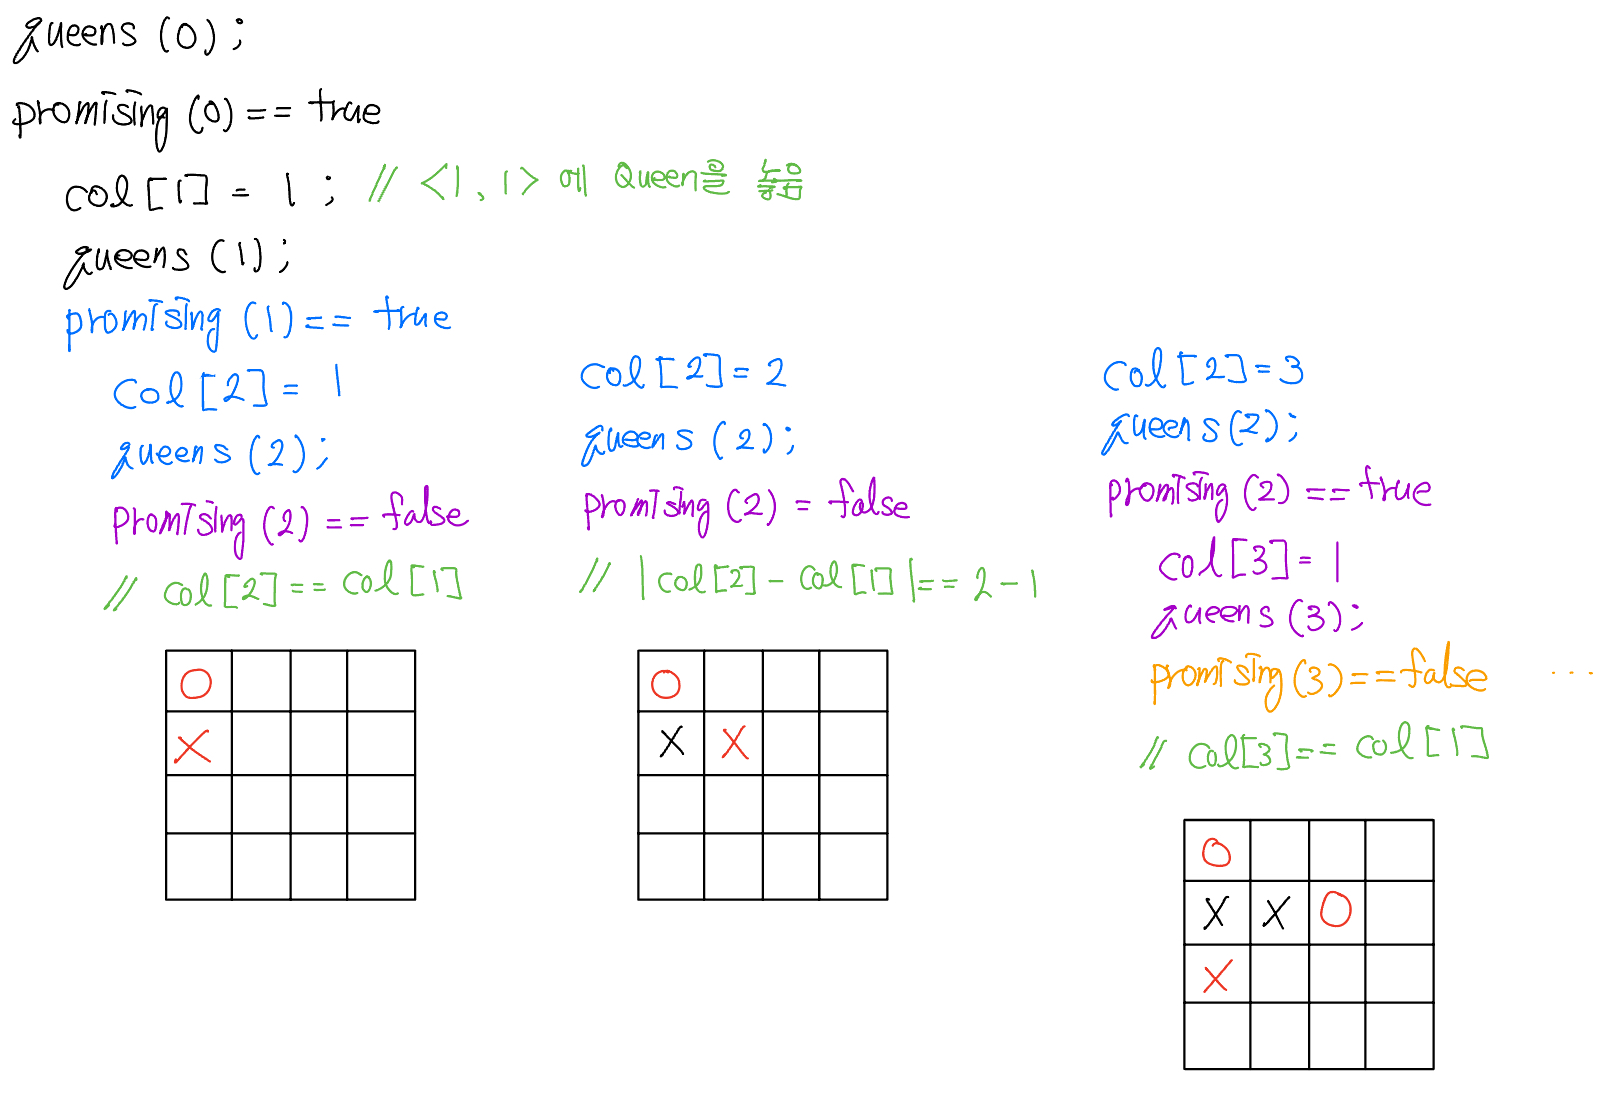 queens (0);
promising (0) == true
col [1] = 1 ; // <1, 1> 에 Queen을 놓음
queens (1);
promising (1) == true
col [2] = 1
queens (2);
promising (2) == false
// col [2] == col [1]
O
X
col [2] = 2
queens (2);
promising (2) = false
// | col [2] - col [1] | == 2 - 1
O
X X
col [2] = 3
queens (2);
promising (2) == true
col [3] = 1
queens (3);
promising (3) == false ...
// col[3] == col [1]
O
X X O
X